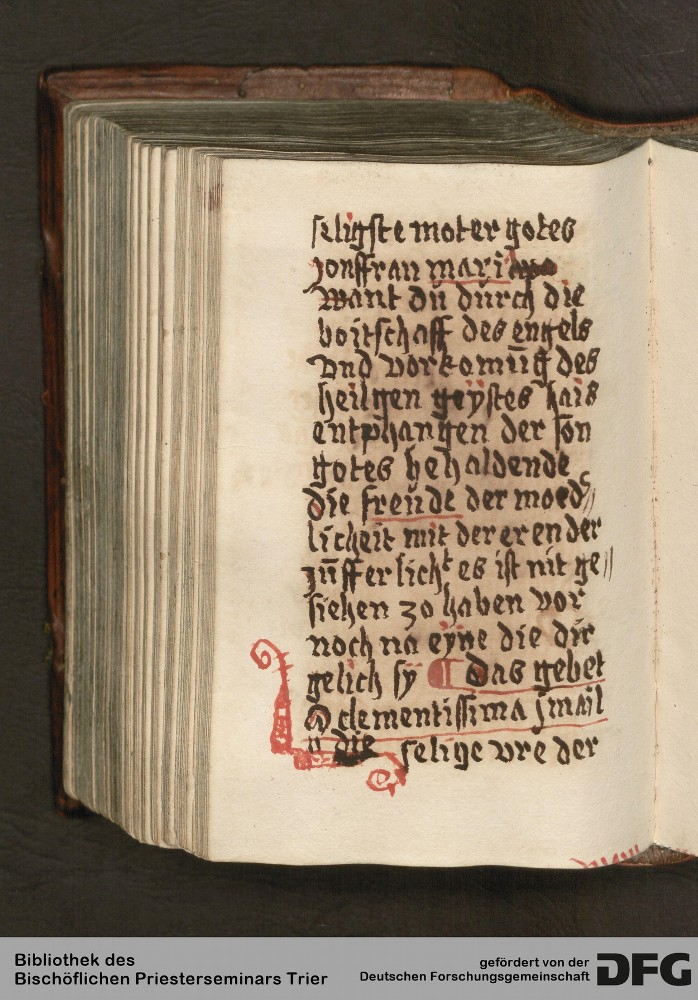 seligste moter gotes
jonffrau maria
want du durch die
boitschaff des engels
vnd vorkomūg des
heilgen geystes hais
entphangen der son
gotes behaldende
die freude der moed//
licheit mit der eren der
zūfferlicht es ist nit ge//
siehen zo haben vor
noch na eyne die dir
gelich sy ¶ das gebet
O clementissima jmail
die selige vre der
Bibliothek des
Bischöflichen Priesterseminars Trier
gefördert von der
Deutschen Forschungsgemeinschaft
DFG